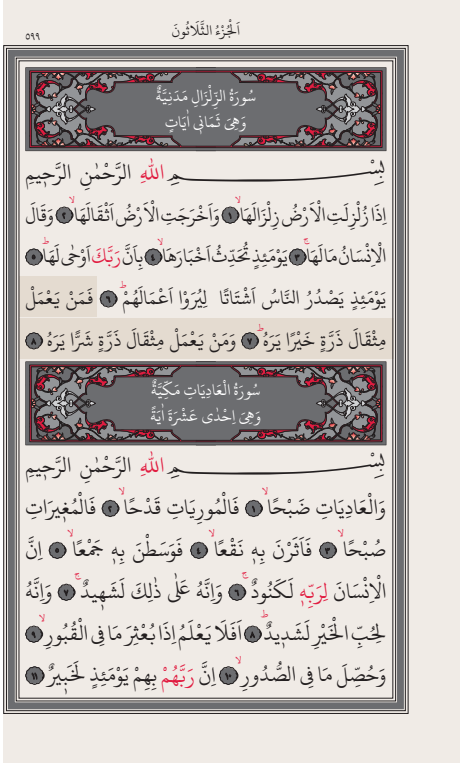 اَلْجُزْءُ الثَّلَاثُونَ
٥٩٩
سُورَةُ الزِّلْزَالِ مَدَنِيَّةٌ
وَهِيَ ثَمَانِي اٰيَاتٍ
بِسْمِ اللّٰهِ الرَّحْمٰنِ الرَّحِيمِ
اِذَا زُلْزِلَتِ الْاَرْضُ زِلْزَالَهَاۙ ﴿١﴾ وَاَخْرَجَتِ الْاَرْضُ اَثْقَالَهَاۙ ﴿٢﴾ وَقَالَ
الْاِنْسَانُ مَالَهَاۚ ﴿٣﴾ يَوْمَئِذٍ تُحَدِّثُ اَخْبَارَهَاۙ ﴿٤﴾ بِاَنَّ رَبَّكَ اَوْحٰى لَهَاۜ ﴿٥﴾
يَوْمَئِذٍ يَصْدُرُ النَّاسُ اَشْتَاتًا لِيُرَوْا اَعْمَالَهُمْۜ ﴿٦﴾ فَمَنْ يَعْمَلْ
مِثْقَالَ ذَرَّةٍ خَيْرًا يَرَهُۜ ﴿٧﴾ وَمَنْ يَعْمَلْ مِثْقَالَ ذَرَّةٍ شَرًّا يَرَهُ ﴿٨﴾
سُورَةُ الْعَادِيَاتِ مَكِّيَّةٌ
وَهِيَ اِحْدٰى عَشْرَةَ اٰيَةً
بِسْمِ اللّٰهِ الرَّحْمٰنِ الرَّحِيمِ
وَالْعَادِيَاتِ ضَبْحًاۙ ﴿١﴾ فَالْمُورِيَاتِ قَدْحًاۙ ﴿٢﴾ فَالْمُغِيرَاتِ
صُبْحًاۙ ﴿٣﴾ فَاَثَرْنَ بِهٖ نَقْعًاۙ ﴿٤﴾ فَوَسَطْنَ بِهٖ جَمْعًاۙ ﴿٥﴾ اِنَّ
الْاِنْسَانَ لِرَبِّهٖ لَكَنُودٌۚ ﴿٦﴾ وَاِنَّهُ عَلٰى ذٰلِكَ لَشَهِيدٌۚ ﴿٧﴾ وَاِنَّهُ
لِحُبِّ الْخَيْرِ لَشَدِيدٌۜ ﴿٨﴾ اَفَلَا يَعْلَمُ اِذَا بُعْثِرَ مَا فِي الْقُبُورِۙ ﴿٩﴾
وَحُصِّلَ مَا فِي الصُّدُورِۙ ﴿١٠﴾ اِنَّ رَبَّهُمْ بِهِمْ يَوْمَئِذٍ لَخَبِيرٌ ﴿١١﴾